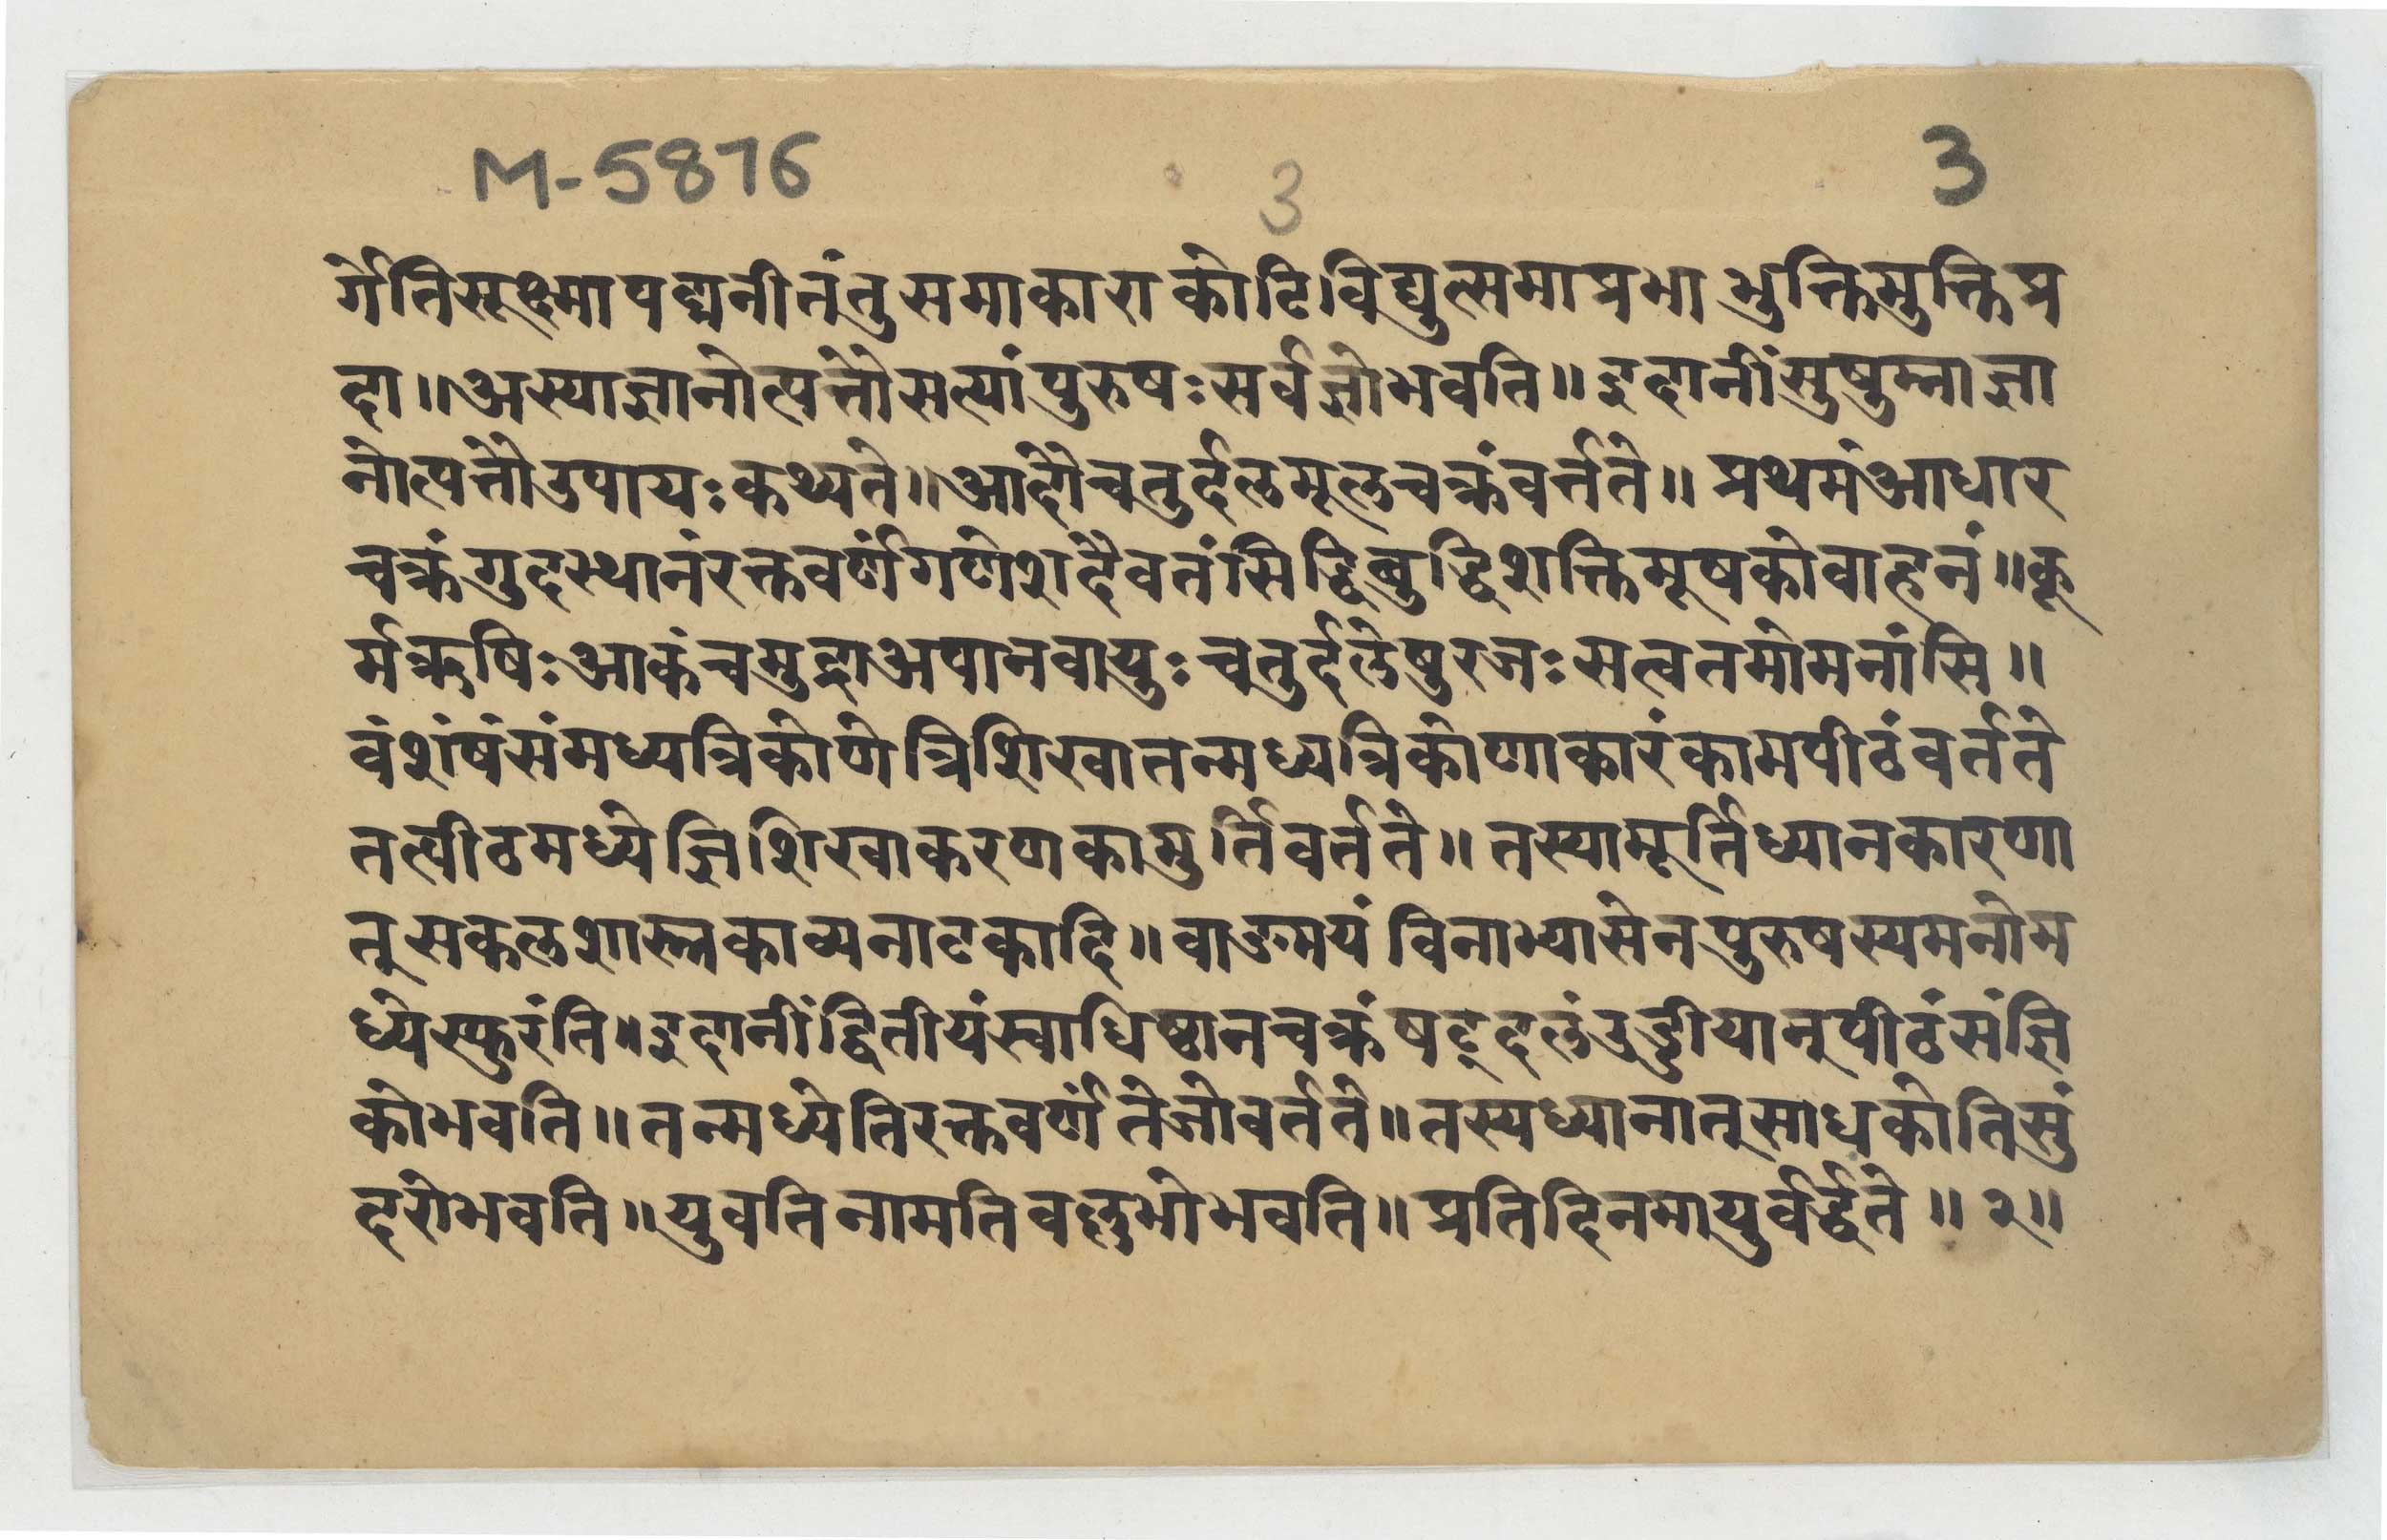 M-5876 3 3
र्गेतिसूक्ष्मापद्मनीतंतुसमाकारा कोटिविद्युत्समाप्रभा भुक्तिमुक्तिप्र
दा॥अस्याज्ञानोत्पत्तौसत्यांपुरुषःसर्वज्ञोभवति॥इदानींसुषुम्नाज्ञा
नोत्पत्तौउपायःकथ्यते॥आदौचतुर्दलमूलचक्रंवर्त्तते॥ प्रथमंआधार
चक्रंगुदस्थानंरक्तवर्णंगणेशदैवतंसिद्धिबुद्धिशक्तिमूषकोवाहनं॥कू
र्मऋषिःआकंचमुद्राअपानवायुःचतुर्दलेषुरजःसत्वतमोमनांसि॥
वंशंषंसंमध्यत्रिकोणेत्रिशिखातन्मध्यत्रिकोणाकारंकामपीठंवर्तते
तत्पीठमध्येज्ञिशिखाकरणकामुर्तिवर्तते॥ तस्यामूर्तिध्यानकारणा
त्सकलशास्त्रकाव्यनाटकादि॥वाङमयं विनाभ्यासेनपुरुषस्यमनोम
ध्येस्फुरंति॥इदानींद्वितीयंस्वाधिष्ठानचक्रंषट्दलंउड्डीयान्पीठंसंज्ञि
कोभवति॥तन्मध्येतिरक्तवर्णंतेजोवर्तते॥तस्यध्यानात्साधकोतिसुं
दरोभवति॥युवतिनामतिवल्लभोभवति॥प्रतिदिनमायुर्वर्द्धते॥२॥